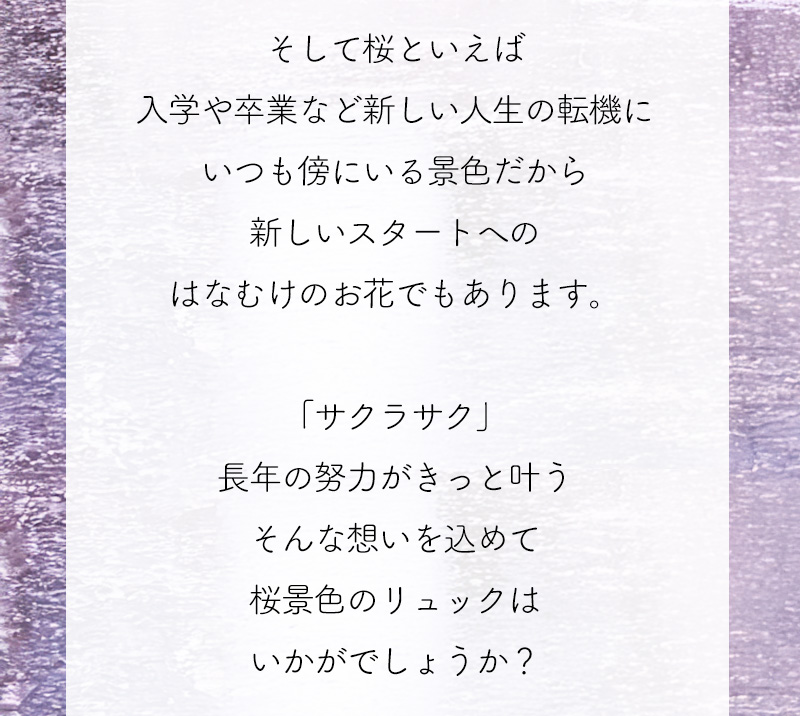 そして桜といえば
入学や卒業など新しい人生の転機に
いつも傍にいる景色だから
新しいスタートへの
はなむけのお花でもあります。
「サクラサク」
長年の努力がきっと叶う
そんな想いを込めて
桜景色のリュックは
いかがでしょうか？